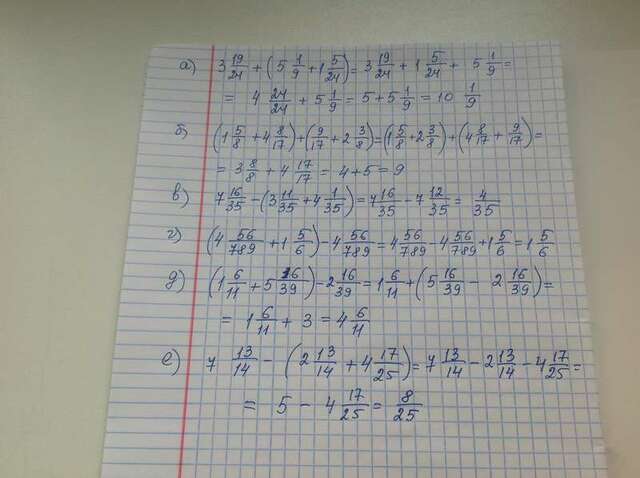 а) 3 19/24 + (5 1/9 + 1 5/24) = 3 19/24 + 1 5/24 + 5 1/9 =
= 4 24/24 + 5 1/9 = 5 + 5 1/9 = 10 1/9
б) (1 5/8 + 4 8/17) + (9/17 + 2 3/8) = (1 5/8 + 2 3/8) + (4 8/17 + 9/17) =
= 3 8/8 + 4 17/17 = 4 + 5 = 9
в) 7 16/35 - (3 11/35 + 4 1/35) = 7 16/35 - 7 12/35 = 4/35
г) (4 56/789 + 1 5/6) - 4 56/789 = 4 56/789 - 4 56/789 + 1 5/6 = 1 5/6
д) (1 6/11 + 5 16/39) - 2 16/39 = 1 6/11 + (5 16/39 - 2 16/39) =
= 1 6/11 + 3 = 4 6/11
е) 7 13/14 - (2 13/14 + 4 17/25) = 7 13/14 - 2 13/14 - 4 17/25 =
= 5 - 4 17/25 = 8/25